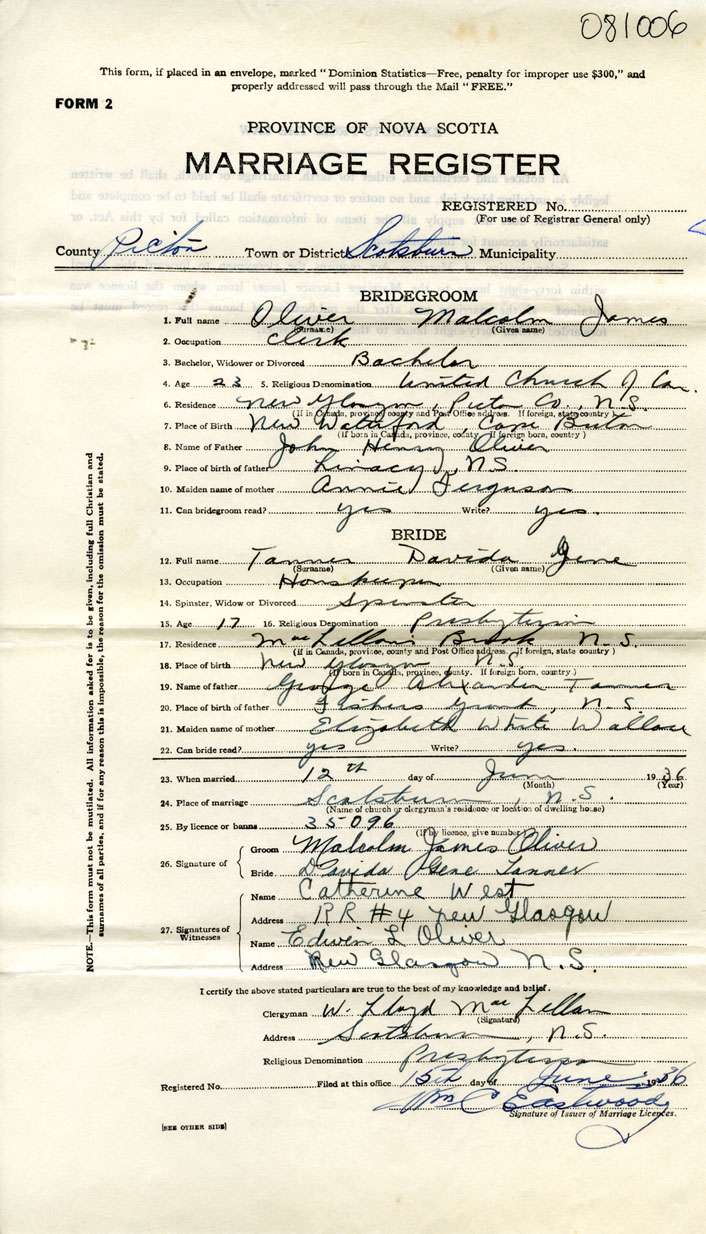 081006
This form, if placed in an envelope, marked "Dominion Statistics—Free, penalty for improper use $300," and
properly addressed will pass through the Mail "FREE."
FORM 2
PROVINCE OF NOVA SCOTIA
MARRIAGE REGISTER
REGISTERED No.
(For use of Registrar General only)
County Pictou Town or District Scotsburn Municipality
BRIDEGROOM
1. Full name Oliver Malcolm James
(Surname) (Given name)
2. Occupation Clerk
3. Bachelor, Widower or Divorced Bachelor
4. Age 23 5. Religious Denomination United Church of Can.
6. Residence New Glasgow, Pictou Co., N.S.
(If in Canada, province, county and Post Office address. If foreign, state country)
7. Place of Birth New Waterford, Cape Breton
(If born in Canada, province, county If foreign born, country)
8. Name of Father John Henry Oliver
9. Place of birth of father Linacy, N.S.
10. Maiden name of mother Annie Ferguson
11. Can bridegroom read? yes Write? yes.
BRIDE
12. Full name Tanner Davida Gene
(Surname) (Given name)
13. Occupation Housekeeper
14. Spinster, Widow or Divorced Spinster
15. Age 17 16. Religious Denomination Presbyterian
17. Residence MacLellan's Brook N.S.
(If in Canada, province, county and Post Office address. If foreign, state country)
18. Place of birth New Glasgow, N.S.
(If born in Canada, province, county. If foreign born, country.)
19. Name of father George Alexander Tanner
20. Place of birth of father Fishers Grant, N.S.
21. Maiden name of mother Elizabeth White Wallace
22. Can bride read? yes Write? yes.
23. When married 12th day of June 1936
(Month) (Year)
24. Place of marriage Scotsburn, N.S.
(Name of church or clergyman's residence or location of dwelling house)
25. By licence or banns 35096
(If by licence, give number)
26. Signature of
Groom Malcolm James Oliver
Bride Davida Gene Tanner
27. Signatures of Witnesses
Name Catherine West
Address RR #4 New Glasgow
Name Edwin L Oliver
Address New Glasgow N.S.
I certify the above stated particulars are true to the best of my knowledge and belief.
Clergyman W. Lloyd MacLellan
(Signature)
Address Scotsburn, N.S.
Religious Denomination Presbyterian
Registered No. Filed at this office 15th day of June 1936
Wm C Eastwood
Signature of Issuer of Marriage Licences.
[SEE OTHER SIDE]
NOTE.—This form must not be mutilated. All information asked for is to be given, including full Christian and
surnames of all parties, and if for any reason this is impossible, the reason for the omission must be stated.